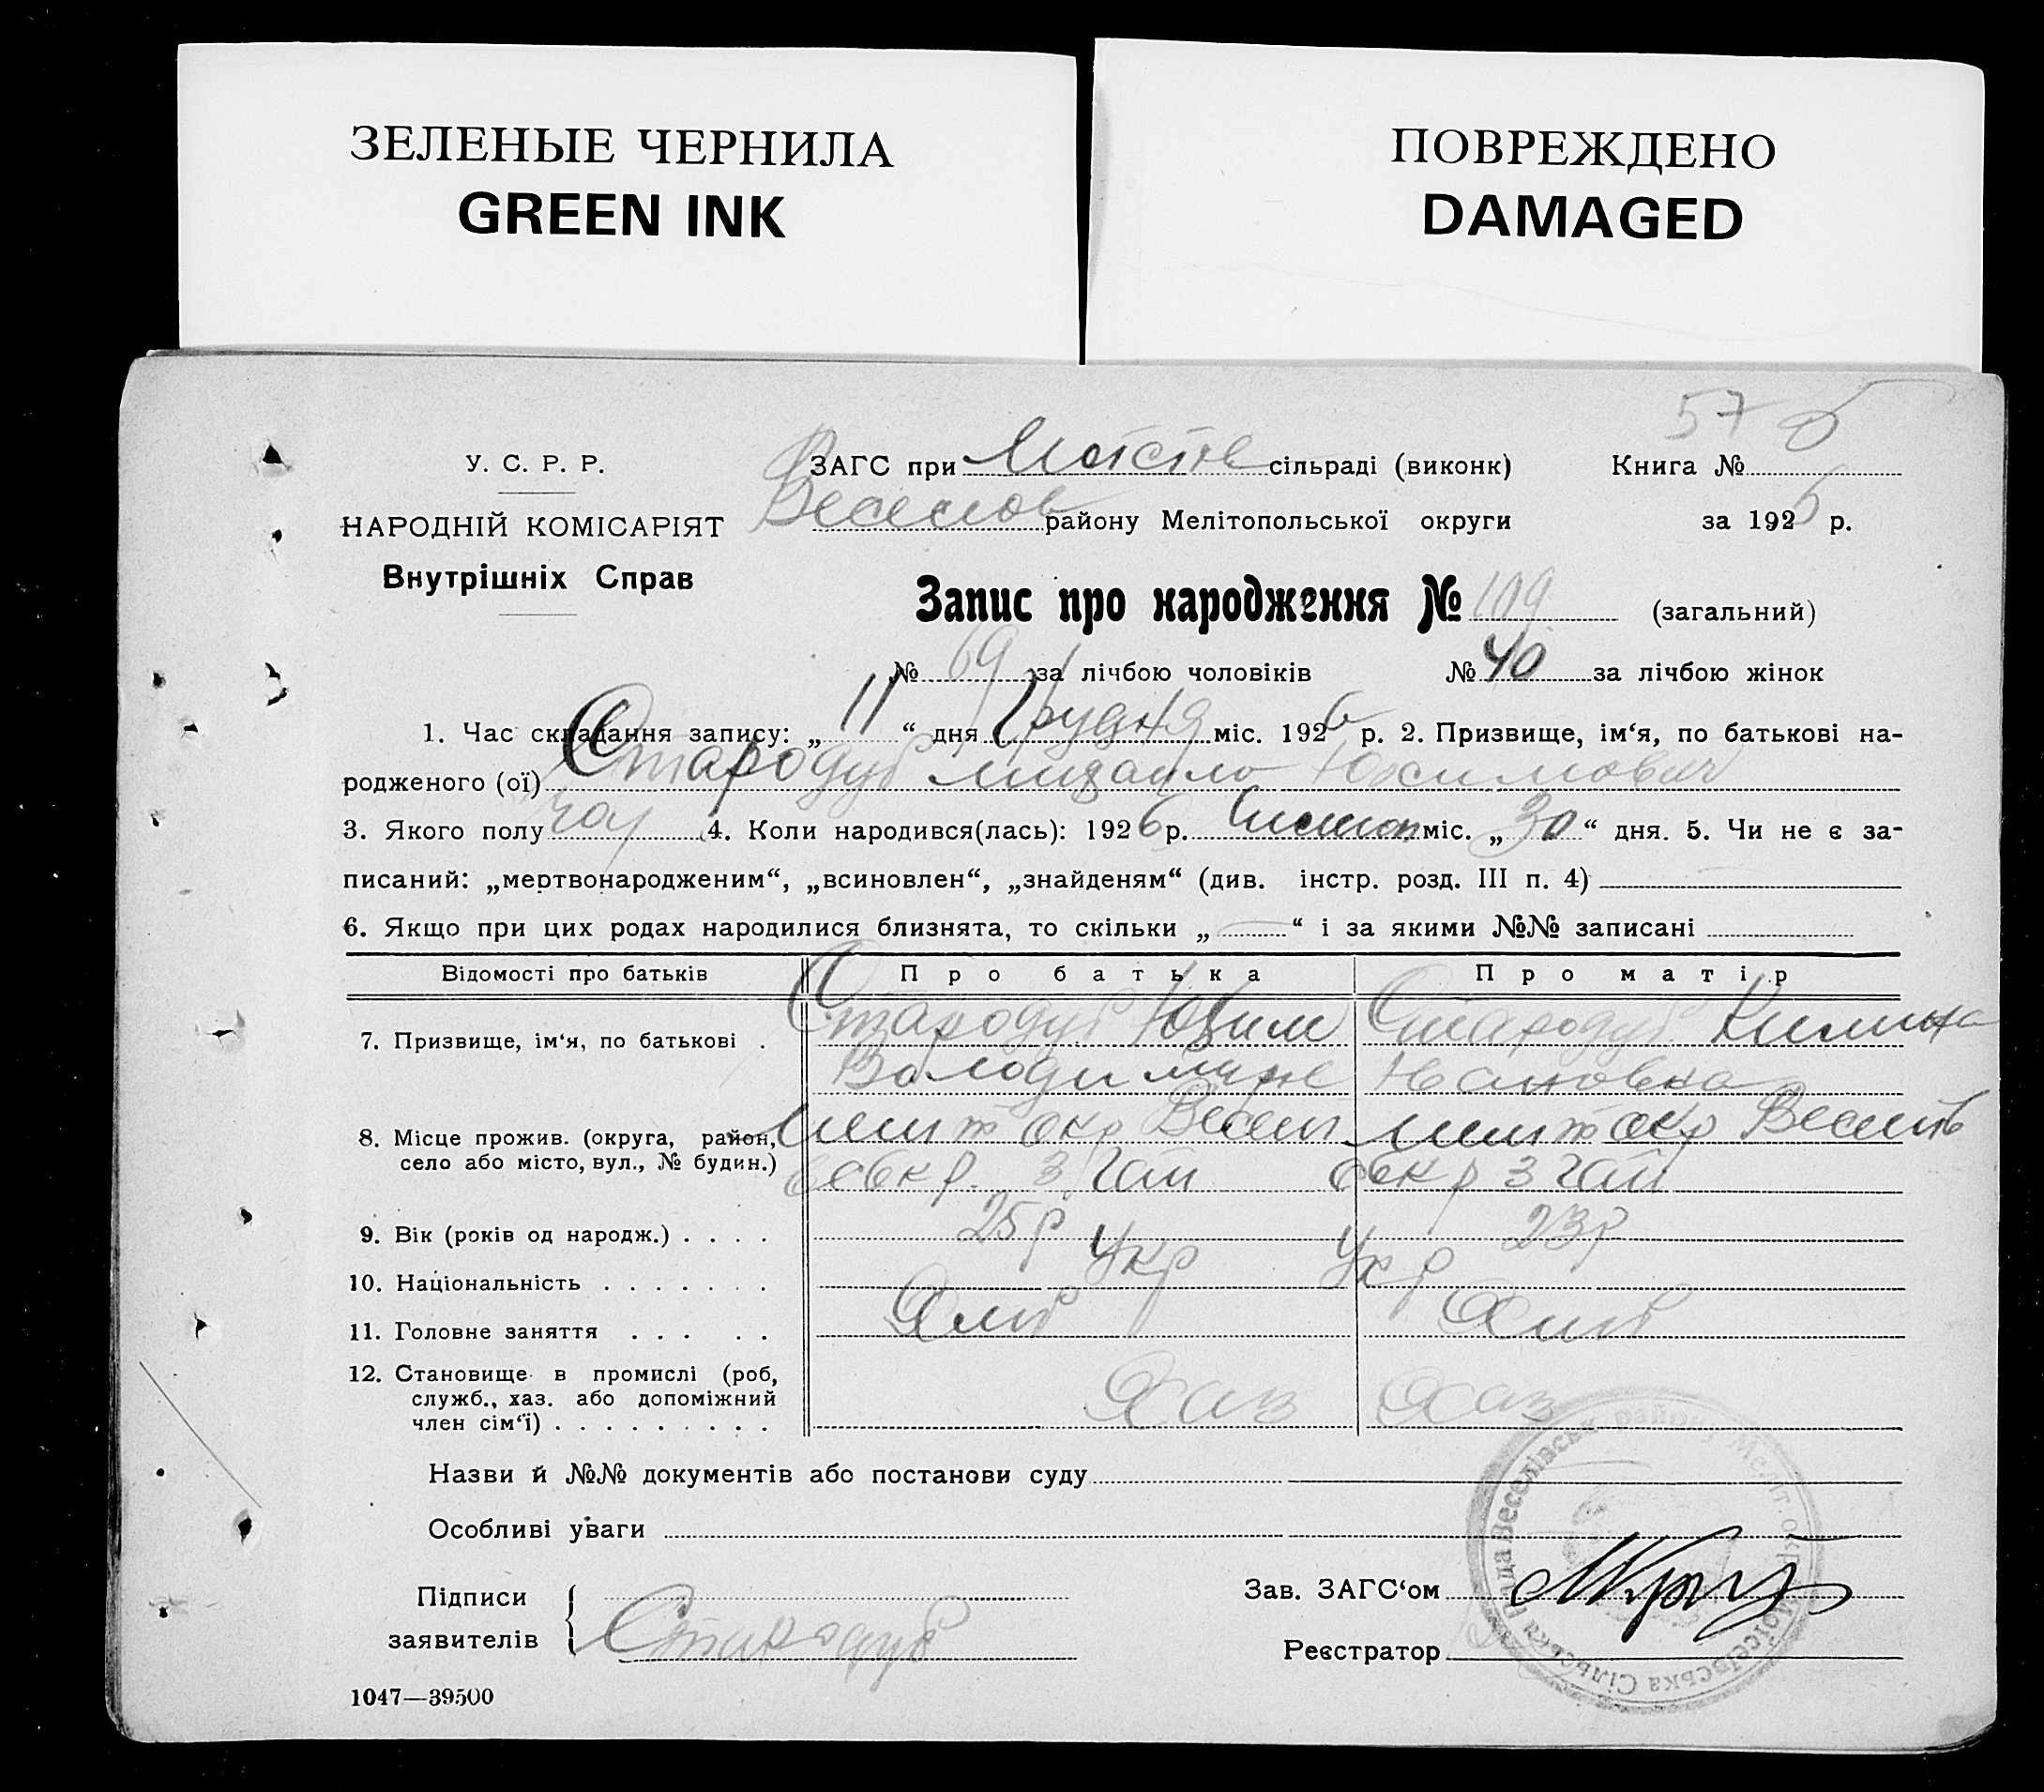 ЗЕЛЕНЫЕ ЧЕРНИЛА
GREEN INK
ПОВРЕЖДЕНО
DAMAGED
57
У. С. Р. Р.
НАРОДНІЙ КОМІСАРІЯТ
Внутрішніх Справ
ЗАГС при сільраді (виконк) Книга №
Веселов району Мелітопольської округи за 1926 р.
Запис про народження № 109 (загальний)
№ 69 за лічбою чоловіків № 40 за лічбою жінок
1. Час складання запису: „ 11 “ дня Грудня міс. 1926 р. 2. Призвище, ім‘я, по батькові на-
родженого (ої) Стародуб Михаило Юхимович
3. Якого полу чол 4. Коли народився(лась): 1926 р. міс. „ 30 “ дня. 5. Чи не є за-
писаний: „мертвонародженим“, „всиновлен“, „знайденям“ (див. інстр. розд. III п. 4)
6. Якщо при цих родах народилися близнята, то скільки „ — “ і за якими №№ записані
Відомості про батьків Про батька Про матір
7. Призвище, ім‘я, по батькові . Стародуб Юхим Стародуб Килина
Володимир Ивановна
8. Місце прожив. (округа, район, Мелит окр Весел Мелит окр Весел
село або місто, вул., № будин.) 3 Гай 3 Гай
9. Вік (років од народж.) . . . . 25 р 23 р
10. Національність . . . . . . . Укр Укр
11. Головне заняття . . . . .
12. Становище в промислі (роб,
служб., хаз. або допоміжний
член сім‘ї) . . . . . . . . . Хаз Хаз
Назви й №№ документів або постанови суду
Особливі уваги
Підписи
заявителів Стародуб
Зав. ЗАГС‘ом
Реєстратор
1047—39500